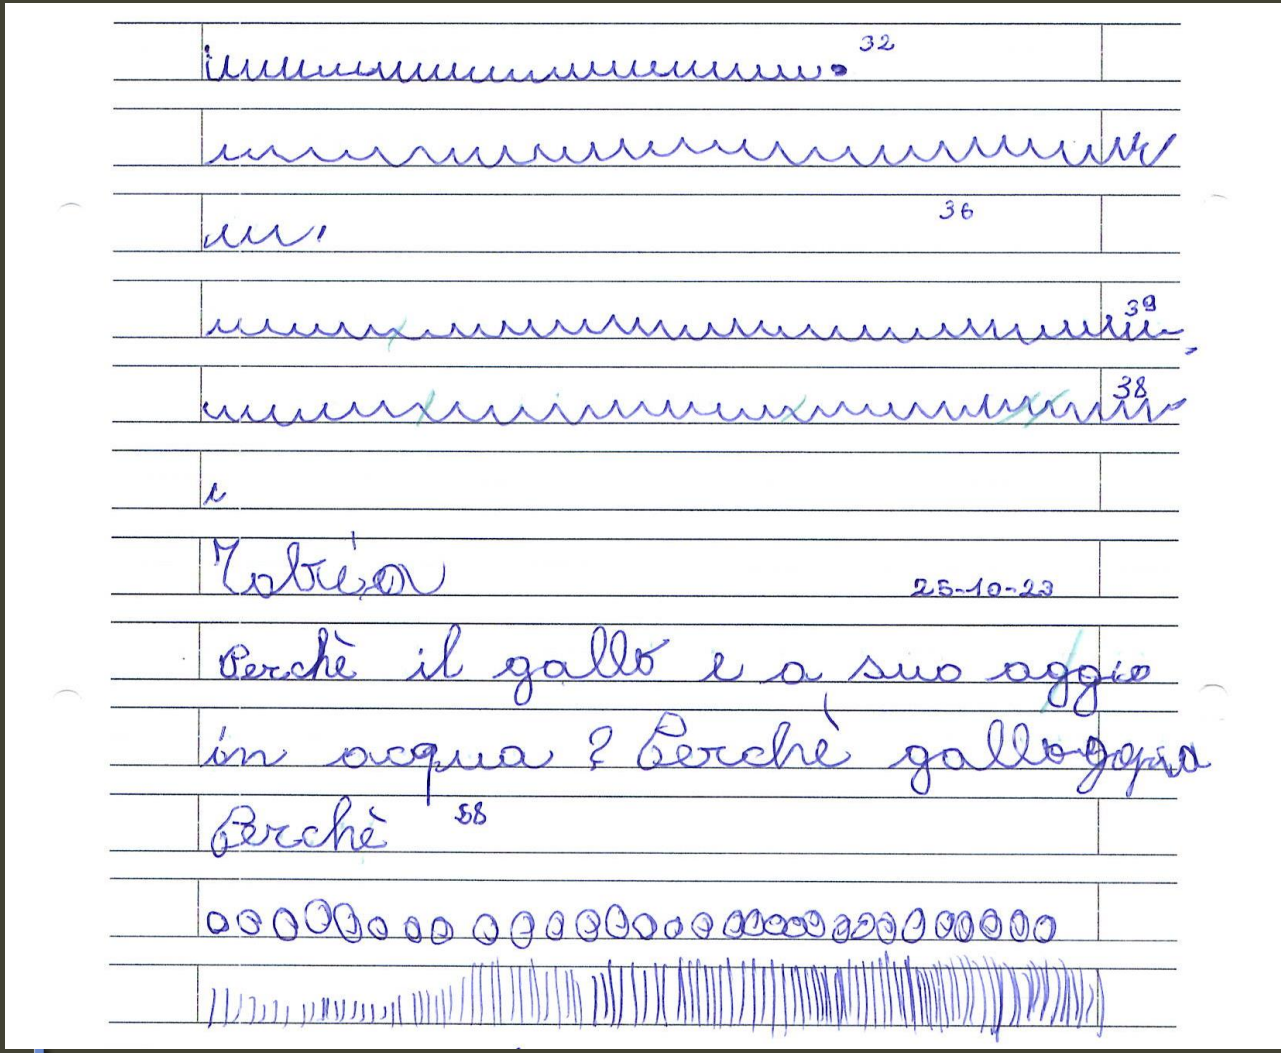 32
36
39
38
Tobia 25-10-23
Perchè il gallo e a suo aggio
in acqua? Perchè galloggia
Perchè 58